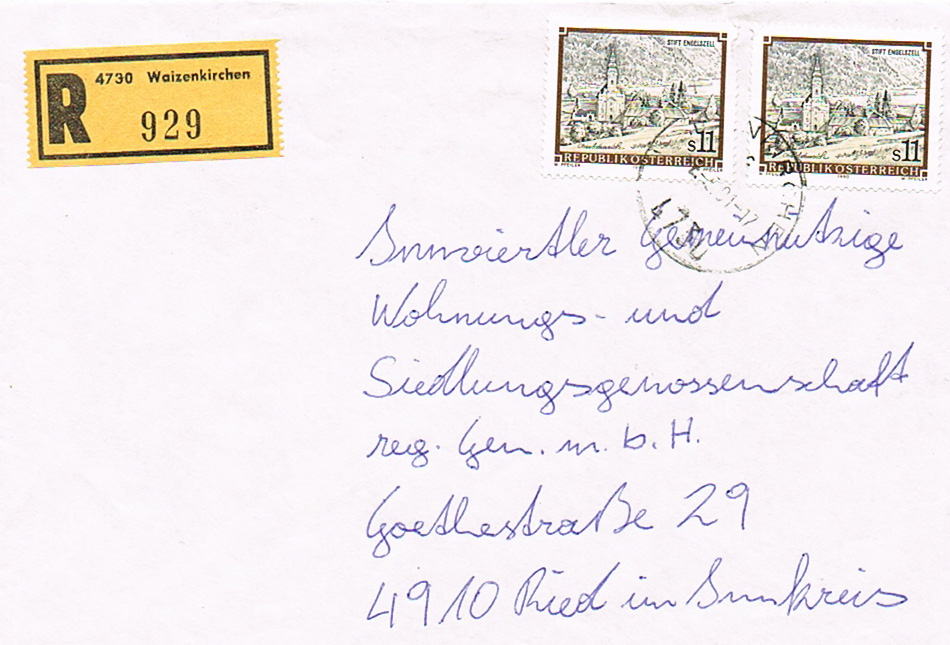 R 4730 Waizenkirchen
929
STIFT ENGELSZELL
s11
REPUBLIK ÖSTERREICH
W. PFEILER
STIFT ENGELSZELL
s11
REPUBLIK ÖSTERREICH
1990
W. PFEILER
4730
Innviertler Gemeinnützige
Wohnungs- und
Siedlungsgenossenschaft
reg. Gen. m. b. H.
Goethestraße 29
4910 Ried im Innkreis